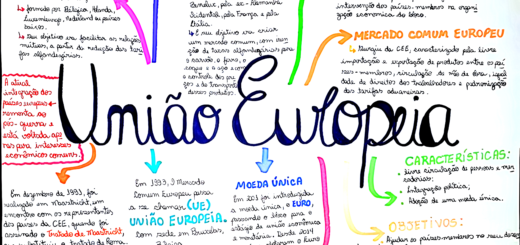 formado por Bélgica, Holanda,
Luxemburgo, referência a países
baixos.
Seu objetivo era facilitar as relações
mútuas, a partir da redução das tari-
fas alfandegárias.
Benelux, pela ex-Alemanha
Ocidental, pela França e pela
Itália.
E seu objetivo era criar
um mercado comum, com isen-
ção de taxas alfandegárias para
o carvão, o ferro, o
e o aço e como
o controle das
e do transporte
desses produtos.
intervenção dos países membros na organi-
zação econômica do bloco.
MERCADO COMUM EUROPEU
Surgiu da CEE, caracterizado pela livre
importação e exportação de produtos entre os paí-
ses-membros, circulação de mão de obra, igual-
dade de direitos dos trabalhadores e padronização
das tarifas aduaneiras.
A atual
integração dos
países europeus
remonta ao
pós-guerra e
está voltada ape-
nas para interesses
econômicos comuns.
União Europeia
Em dezembro de 1991, foi
realizado em Maastricht, um
encontro com os representantes
dos países da CEE, quando foi
assinado o Tratado de Maastricht,
o Tratado de Roma.
Em 1993, o mercado
Comum Europeu passa
a se chamar (UE)
UNIÃO EUROPEIA.
com sede em Bruxelas,
MOEDA ÚNICA
Em 201 foi introduzida
a moeda única, o EURO,
passando o bloco para o
estágio de união econômica
e monetária. Hoje 2014
o Euro
CARACTERÍSTICAS:
livre circulação de pessoas e mer-
cadorias;
Integração política;
Adoção de uma moeda única.
OBJETIVOS:
Ajudar os países-membros no seu desen-